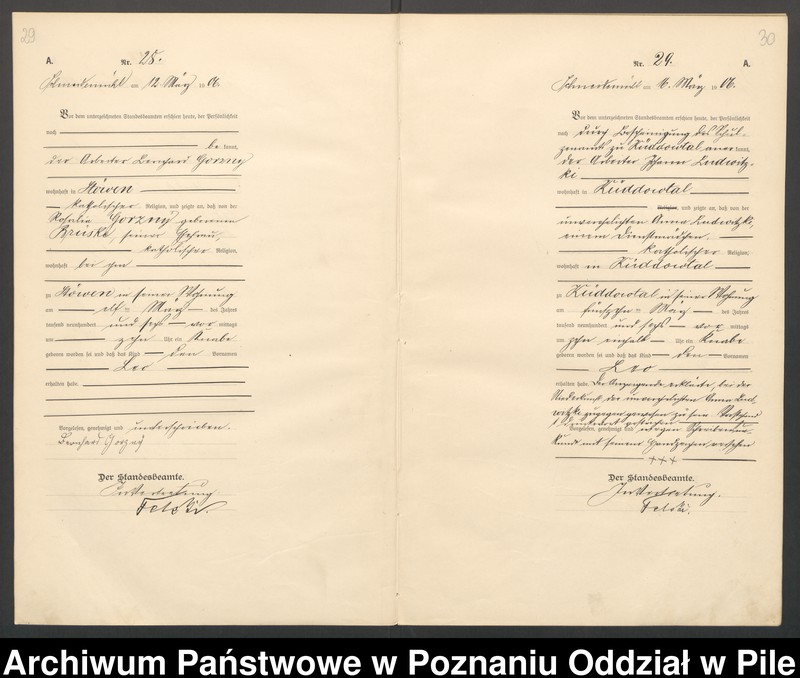 29
A.
Nr. 28.
Schneidemühl am 12. März 1906.
Vor dem unterzeichneten Standesbeamten erschien heute, der Persönlichkeit
nach
be kannt,
der Arbeiter Bernhard Gorzny
wohnhaft in Stöwen
katholischer Religion, und zeigte an, daß von der
Rosalie Gorzny geborenen
Bruske, seiner Ehefrau,
katholischer Religion,
wohnhaft bei ihm
zu Stöwen in seiner Wohnung
am elf-ten März des Jahres
tausend neunhundert und sechs vor mittags
um zehn Uhr ein Knabe
geboren worden sei und daß das Kind den Vornamen
Leo
erhalten habe.
Vorgelesen, genehmigt und unterschrieben.
Bernhard Gorzny
Der Standesbeamte.
In Vertretung.
30
Nr. 29.
A.
Schneidemühl am 16. März 1906.
Vor dem unterzeichneten Standesbeamten erschien heute, der Persönlichkeit
nach durch Bescheinigung des Schul-
zenamts zu Küddowtal aner kannt,
der Arbeiter Johann Ludwitz-
ki
wohnhaft in Küddowtal
Religion, und zeigte an, daß von der
unverehelichten Anna Ludwitzki,
einem Dienstmädchen,
katholischer Religion,
wohnhaft in Küddowtal
zu Küddowtal in seiner Wohnung
am fünfzehn-ten März des Jahres
tausend neunhundert und sechs vor mittags
um zehn einhalb Uhr ein Knabe
geboren worden sei und daß das Kind den Vornamen
Leo
erhalten habe. Der Anzeigende erklärte, bei der
Niederkunft der unverehelichten Anna Lud-
witzki zugegen gewesen zu sein. Vorstehend
1 Druckwort gestrichen.
Vorgelesen, genehmigt und wegen Schreibensun-
kunde mit seinem Handzeichen versehen
+++
Der Standesbeamte.
In Vertretung.
Archiwum Państwowe w Poznaniu Oddział w Pile